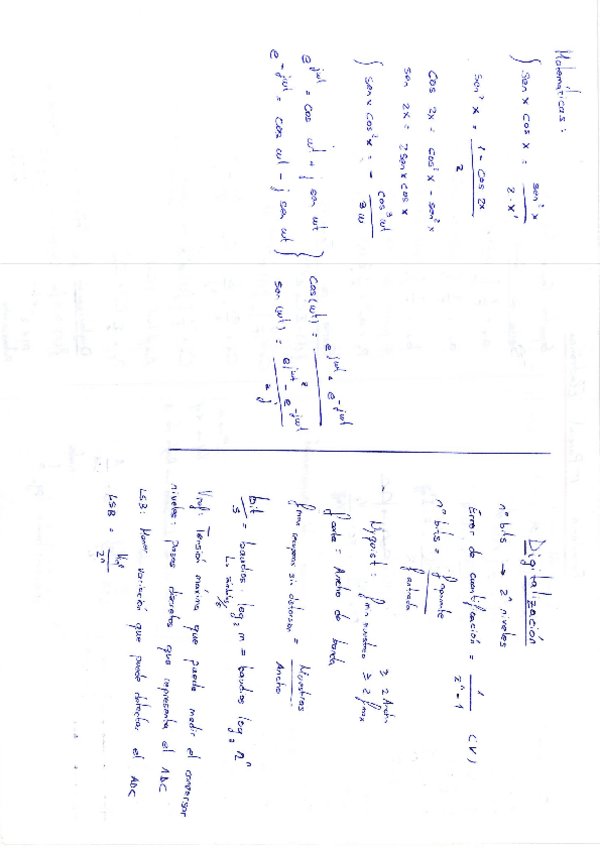 Matemáticas:
∫ sen x cos x = sen² x / 2·x'
sen² x = 1 - cos 2x / 2
cos 2x = cos² x - sen² x
sen 2x = 2 sen x cos x
∫ sen x cos² x = - cos³ wt / 3w
e^jwt = cos wt + j sen wt
e^-jwt = cos wt - j sen wt }
cos(wt) = e^jwt + e^-jwt / 2
sen(wt) = e^jwt - e^-jwt / 2j
Digitalización
nº bits → 2^n niveles
Error de cuantificación = 1 / 2^n - 1 (V)
nº bits = / f entrada
Nyquist: f min muestreo ≥ 2 f max
≥ 2 Ancho
= Ancho de banda
sin distorsion = Muestras / Ancho
bit/s = baudios · log₂ m = baudios log₂ 2^n
Vref: Tensión máxima que puede medir el conversor
niveles: pasos discretos que representa el ADC
LSB: Menor variación que puede detectar el ADC
LSB = Vref / 2^n